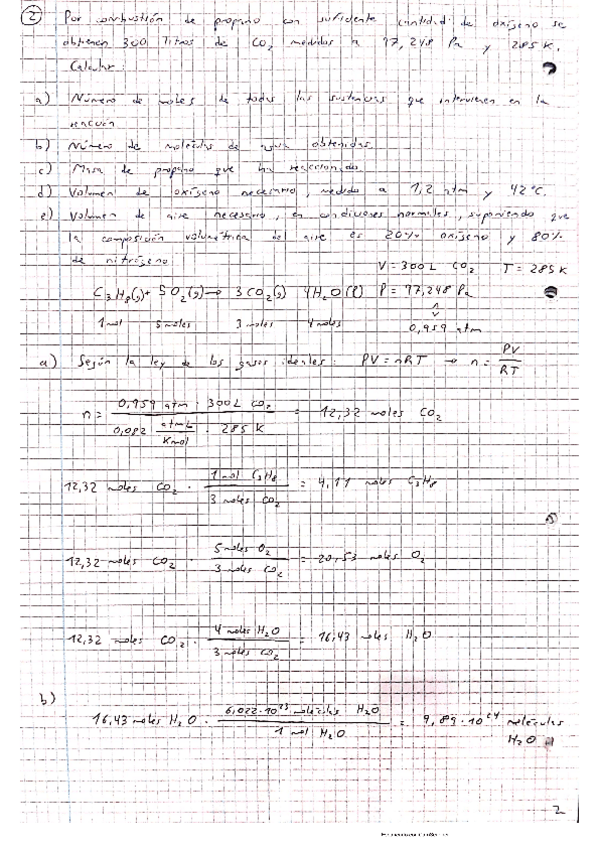 2 Por combustión de propano con suficiente cantidad de oxígeno se
obtienen 300 litros de CO2 medidos a 97,248 Pa y 285 K.
Calcular:
a) Número de moles de todas las sustancias que intervienen en la
reacción
b) Número de moléculas de agua obtenidas
c) Masa de propano que ha reaccionado
d) Volumen de oxígeno necesario, medido a 1,2 atm y 42°C.
e) Volumen de aire necesario, en condiciones normales, suponiendo que
la composición volumétrica del aire es 20% oxígeno y 80%
de nitrógeno
V = 300 L CO2 T = 285 K
C3H8(g) + 5O2(g) → 3CO2(g) 4H2O(l) P = 97,248 Pa
1 mol 5 moles 3 moles 4 moles 0,959 atm
a) Según la ley de los gases ideales: PV = nRT → n = PV / RT
n = 0,959 atm · 300L CO2 / 0,082 atm·L / K mol · 285 K = 12,32 moles CO2
12,32 moles CO2 · 1 mol C3H8 / 3 moles CO2 = 4,11 moles C3H8
12,32 moles CO2 · 5 moles O2 / 3 moles CO2 = 20,53 moles O2
12,32 moles CO2 · 4 moles H2O / 3 moles CO2 = 16,43 moles H2O
b)
16,43 moles H2O · 6,022·10^23 moléculas H2O / 1 mol H2O = 9,89·10^24 moléculas
H2O
2